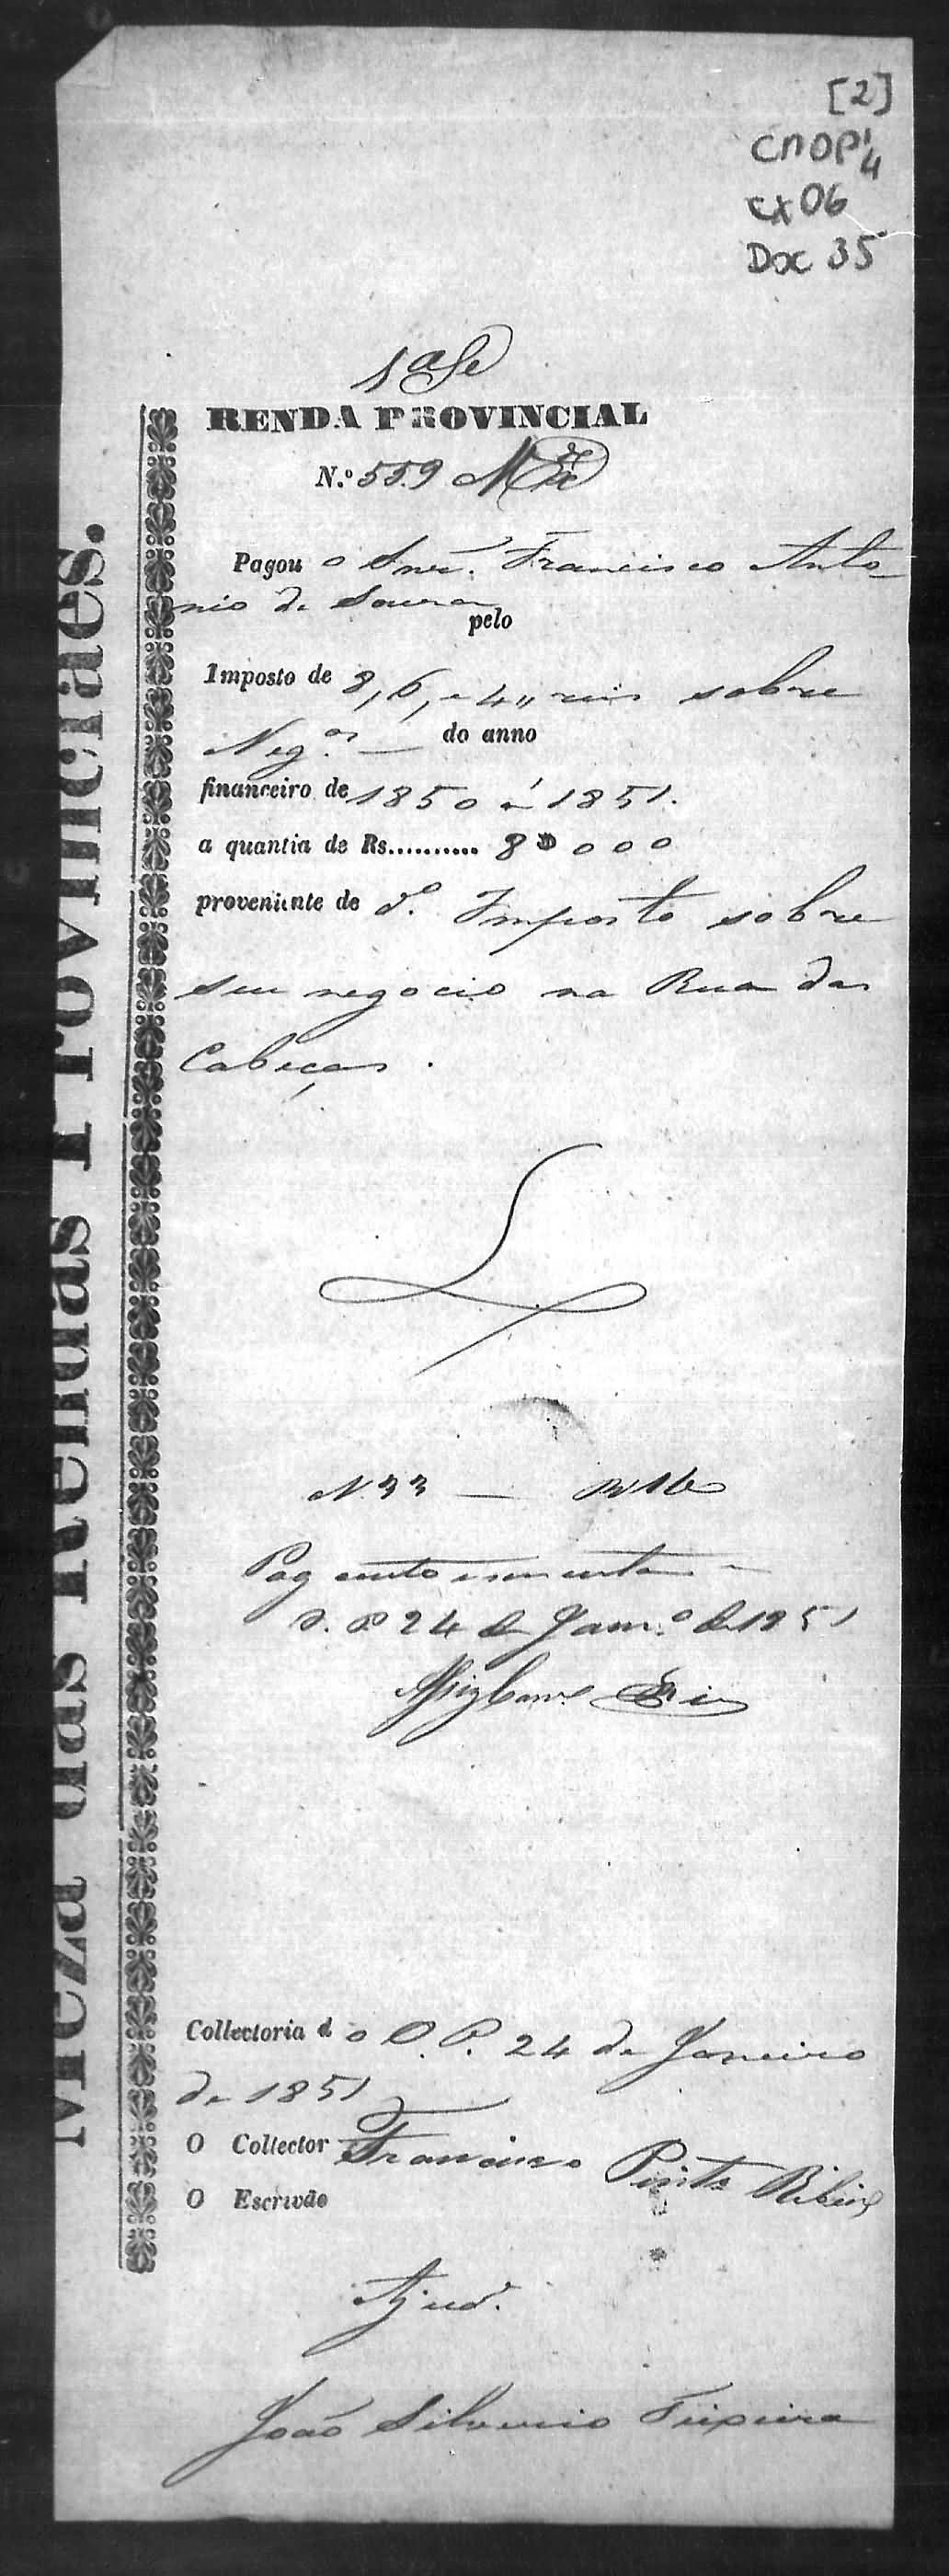 [2]
CMOP 1/4
cx 06
Doc 35
1a Se
RENDA PROVINCIAL
N.º 559
Pagou o Snr. Francisco Anto-
nio de Souza
pelo
Imposto de 8, 6, e 4,, reis sobre
Neg.os — do anno
financeiro de 1850 á 1851.
a quantia de Rs.......... 8$000
proveniente de d.º Imposto sobre
seu negocio na Rua das
Cabeças.
N. 33 —
Pag cento e sessenta
O. P. 24 de Janr.º de 1851
Collectoria d o O. P. 24 de Janeiro
de 1851
O Collector Francisco Pinto Ribeiro
O Escrivão
Ajud.
João Silverio Teixeira
Meza das Rendas Provinciaes.